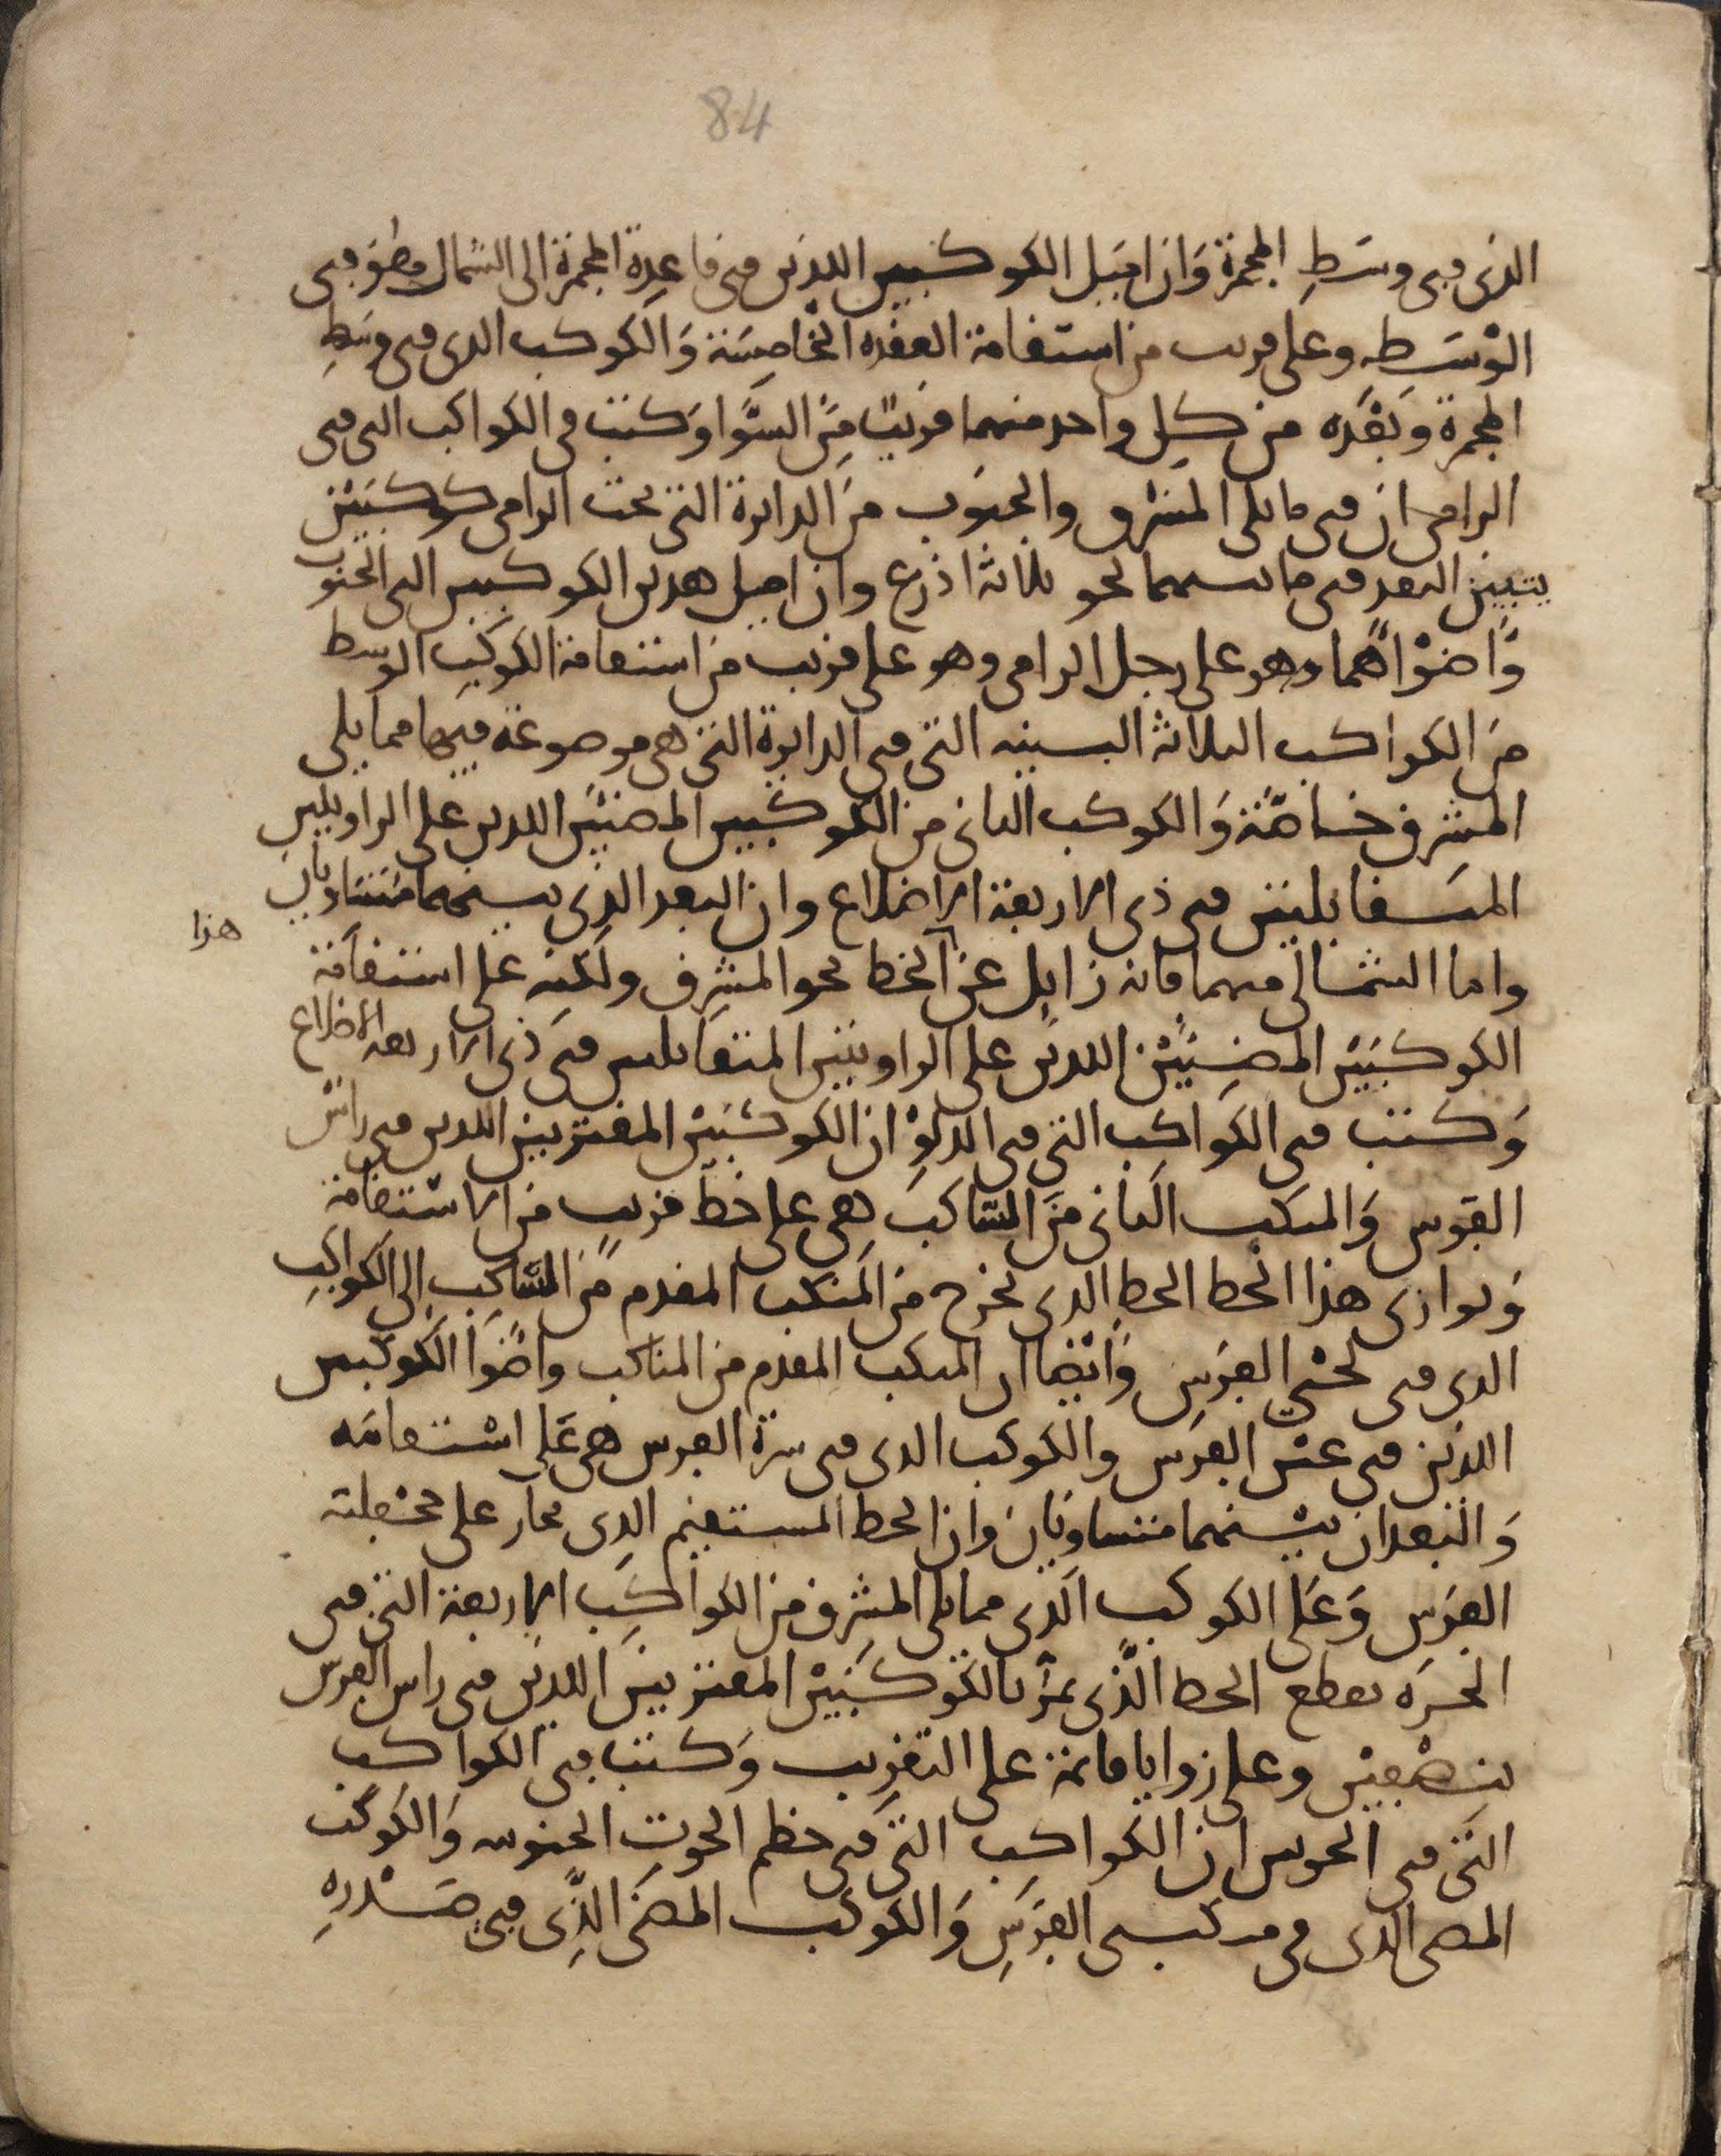 84
الذى فى وسط المجمرة وان اميل الكوكبين اللذين فى قاعدة المجمرة الى الشمال وهو فى
الوسط وعلى قريب من استقامة العقدة الخامسة والكوكب الذى فى وسط
المجمرة وبعده من كل واحد منهما قريب من السوا وكتب فى الكواكب التى فى
الرامى ان فى ما يلى المشرق والجنوب من الدايرة التى تحت الرامى كوكبين
يتبين البعد فى ما بينهما نحو ثلاثة اذرع وان اميل هذين الكوكبين الى الجنوب
واضواهما وهو على رجل الرامى وهو على قريب من استقامة الكوكب الوسط
من الكواكب الثلاثة البينه التى فى الدايرة التى هى موضوعة فيها مما يلى
المشرق خاصة والكوكب الثانى من الكوكبين المضيين اللذين على الزاويتين
المتقابلتين فى ذى الاربعة الاضلاع وان البعد الذى بينهما متساويان
واما الشمالى منهما فانه زايل عن الخط نحو المشرق ولكنه على استقامة
هذا
الكوكبين المضيين اللذين على الزاويتين المتقابلتين فى ذى الاربعة الاضلاع
وكتب فى الكواكب التى فى الدلو ان الكوكبين المقتربين اللذين فى راس
القوس والمنكب الثانى من الساكب هى على خط قريب من الاستقامة
ويوازى هذا الخط الخط الذى يخرج من المنكب المقدم من الساكب الى الكواكب
الذى فى لحى الفرس وايضا ان المنكب المقدم من المناكب واضوا الكوكبين
اللذين فى عنق الفرس والكوكب الذى فى سرة الفرس هى على استقامه
والبعدان بينهما متساويان وان الخط المستقيم الذى يجاز على جحفلته
الفرس وعلى الكوكب الذى مما يلى المشرق من الكواكب الاربعة التى فى
الجره يقطع الخط الذى يمر بالكوكبين المقتربين اللذين فى راس الفرس
بنصفين وعلى زوايا قايمة على التقريب وكتب فى الكواكب
التى فى الحوس ان الكواكب التى فى خطم الحوت الجنوبى والكوكب
المضى الذى فى منكبى الفرس والكوكب المضى الذى فى صدره